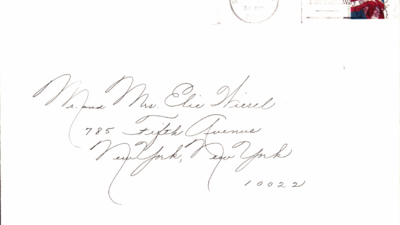 Mr. and Mrs. Elie Wiesel
785 Fifth Avenue
New York, New York
10022